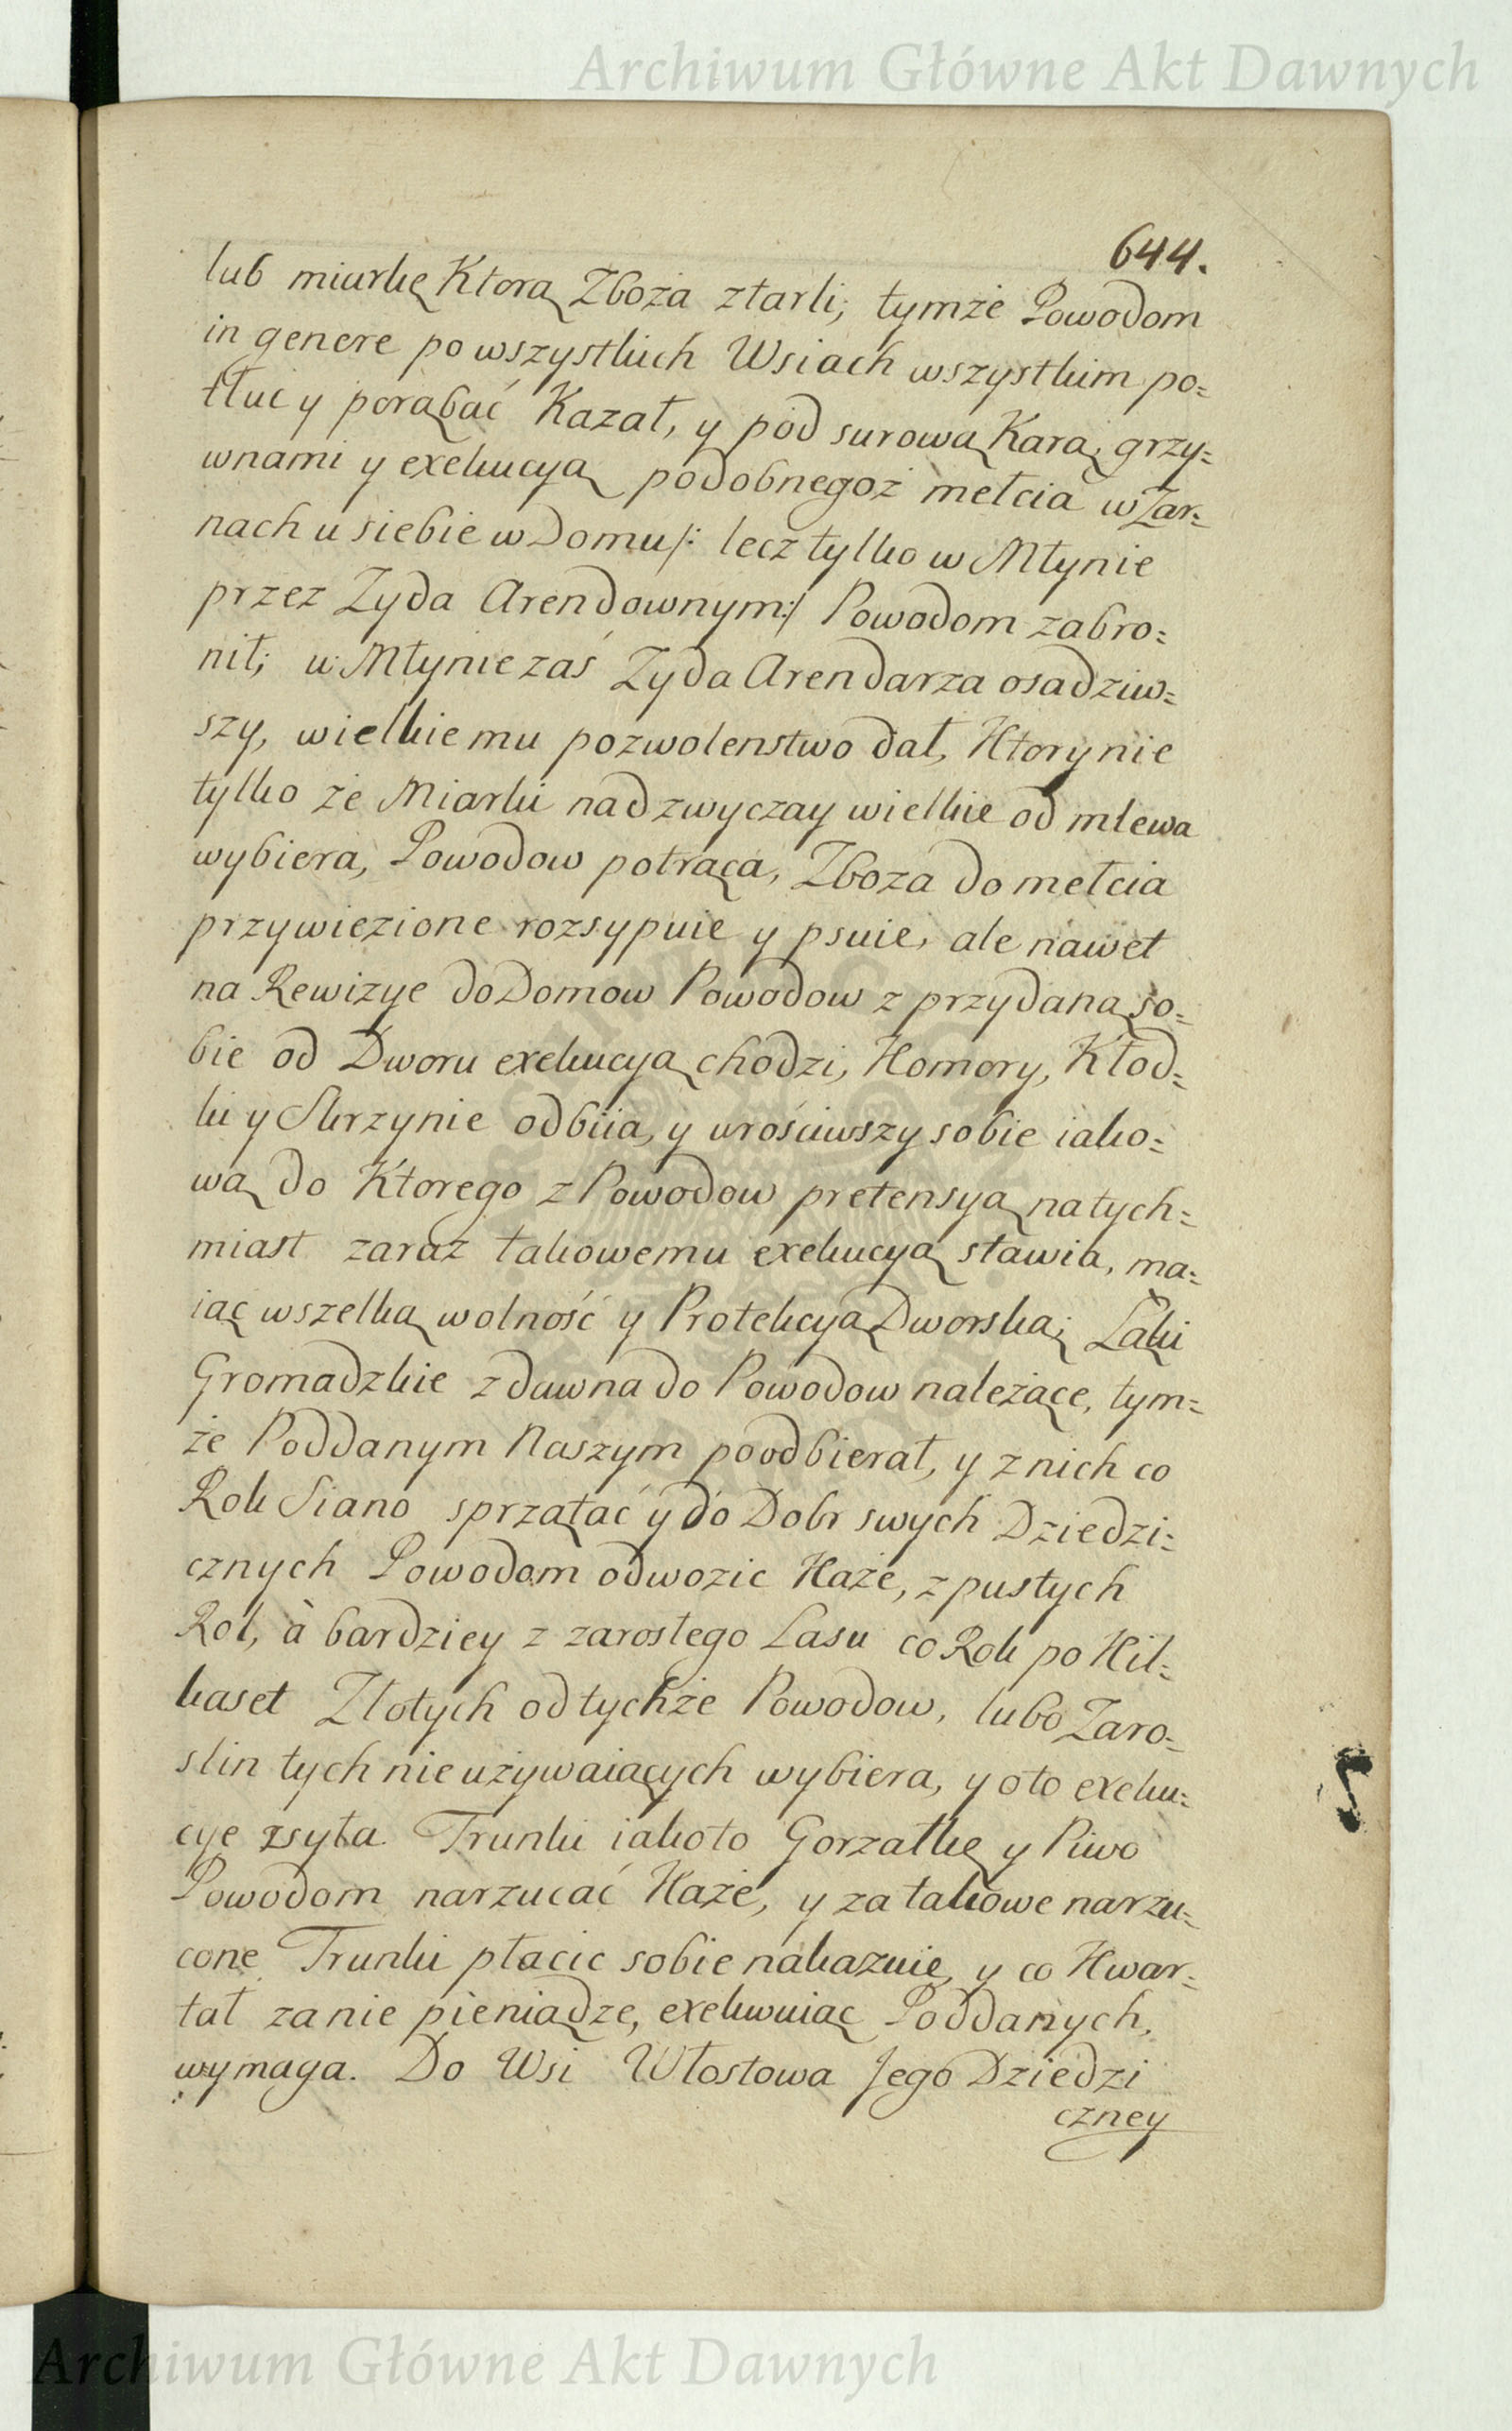 Archiwum Główne Akt Dawnych
644.
lub miarkę Ktorą Zboża ztarli; tymże Powodom
in genere po wszystkich Wsiach wszystkim po=
tłuc y porąbać Kazał, y pod surową Karą, grzy=
wnami y exekucyą podobnegoż mełcia w Żar=
nach u siebie w Domu /: lecz tylko w Młynie
przez Zyda Arendownym :/ Powodom zabro=
nił; w Młynie zaś Zyda Arendarza osadziw=
szy, wielkie mu pozwolenstwo dał, Ktory nie
tylko że Miarki nad zwyczay wielkie od mlewa
wybiera, Powodow potrąca, Zboża do mełcia
przywiezione rozsypuie y psuie, ale nawet
na Rewizye do Domow Powodow z przydaną so=
bie od Dworu exekucyą chodzi, Komory, Kłod=
ki y Skrzynie odbiia, y urościwszy sobie iako=
wą do Ktorego z Powodow pretensyą natych=
miast zaraz takowemu exekucyą stawia, ma=
iąc wszelką wolność y Protekcyą Dworską; Łąki
Gromadzkie z dawna do Powodow należące, tym=
że Poddanym Naszym poodbierał, y z nich co
Rok Siano sprzątać y do Dobr swych Dziedzi=
cznych Powodom odwozic Każe, z pustych
Rol, à bardziey z zarosłego Lasu co Rok po Kil=
kaset Złotych od tychże Powodow, lubo Zaro=
slin tych nie używaiących wybiera, y o to exeku=
cye zsyła. Trunki iako to Gorzałkę y Piwo
Powodom narzucać Każe, y za takowe narzu=
cone Trunki płacic sobie nakazuie, y co Kwar=
tał za nie pieniądze, exekwuiąc Poddanych,
wymaga. Do Wsi Włostowa Jego Dziedzi
czney
Archiwum Główne Akt Dawnych